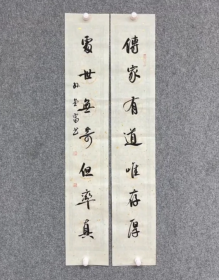 傳家有道唯存厚
處世無奇但率真